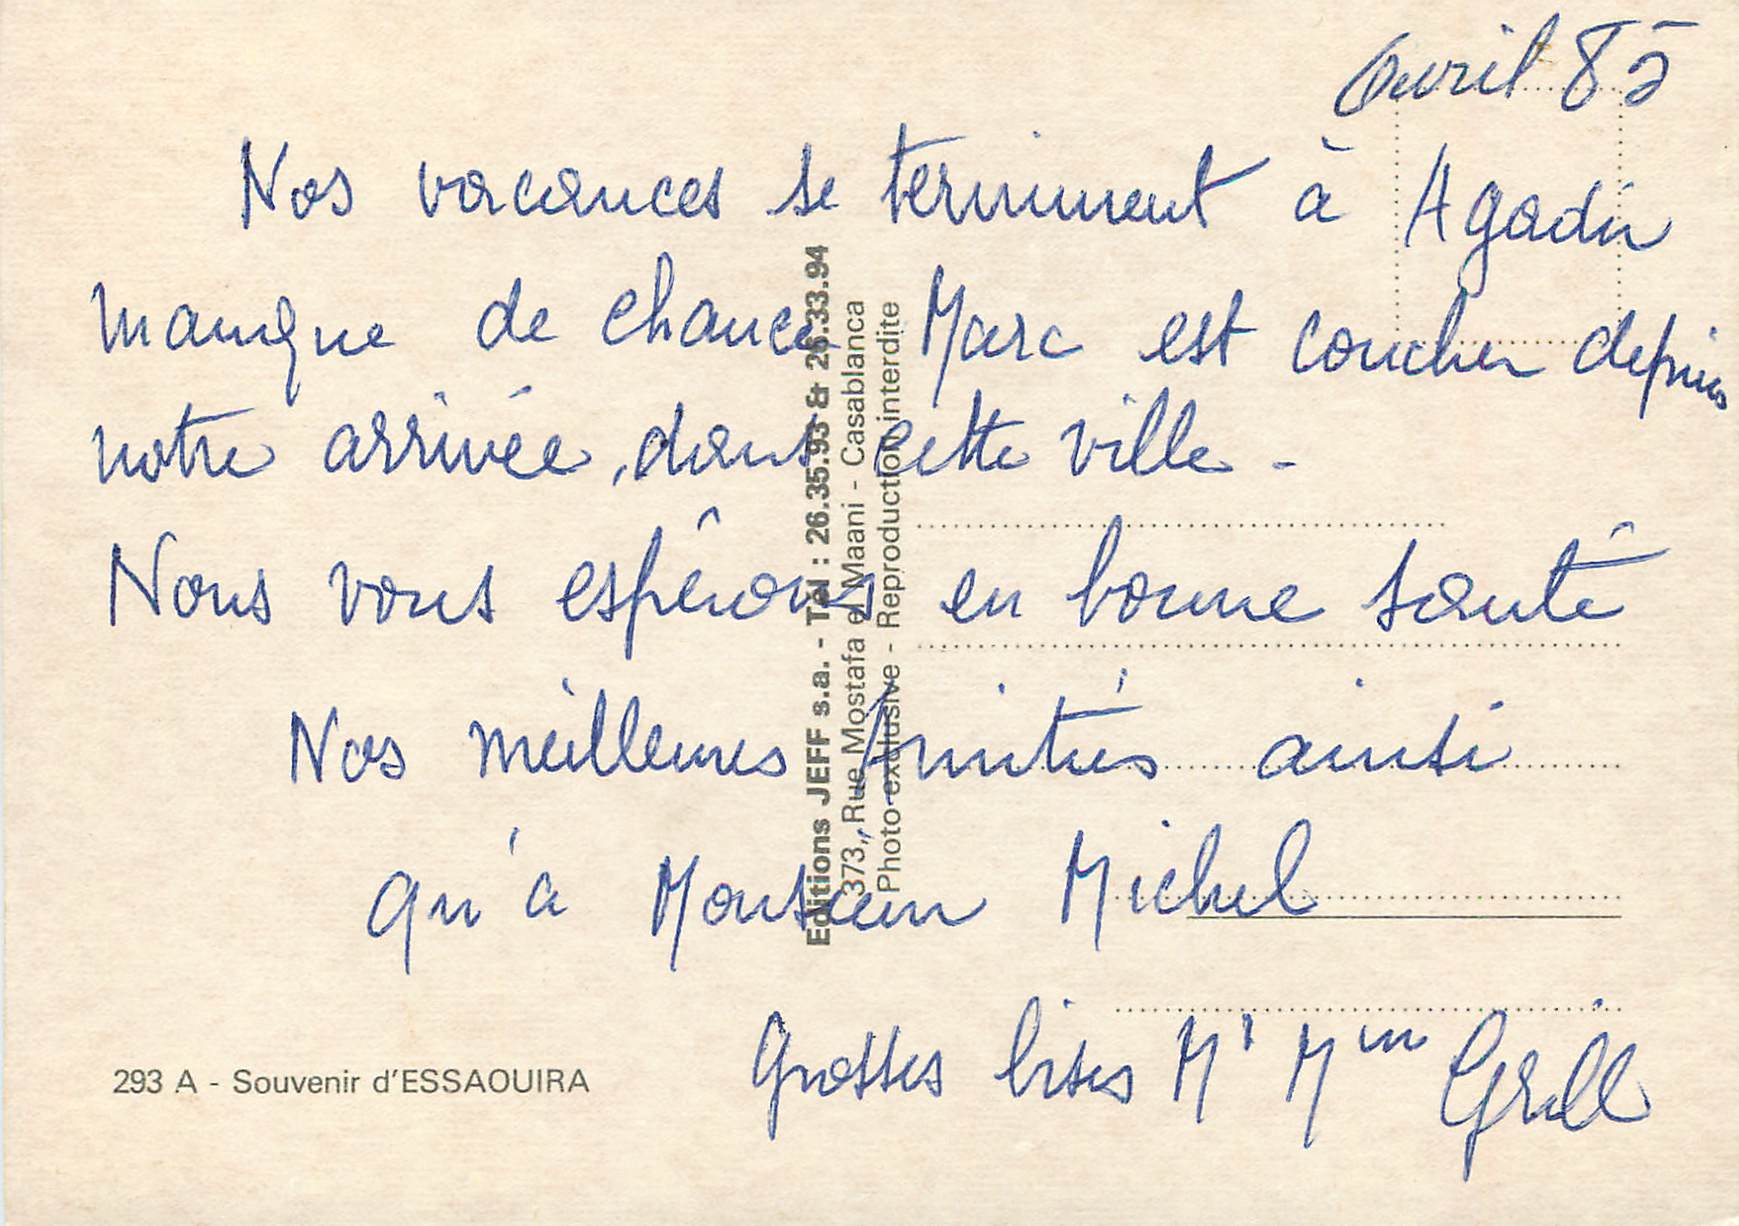 Avril 85
Nos vacances se terminent à Agadir
manque de chance Marc est coucher depuis
notre arrivée, dans cette ville -
Nous vous espérons en bonne santé
Nos meilleures Amitiés ainsi
qu'à Monsieur Michel
Grosses bises Mr Mme Grill
293 A - Souvenir d'ESSAOUIRA
Editions JEFF s.a. - Tél : 26.35.93 & 26.33.94
373, Rue Mostafa el Maani - Casablanca
Photo exclusive - Reproduction interdite